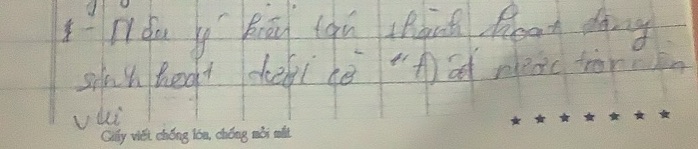 1 - Nêu ý kiến tán thành hoạt động
sinh hoạt dưới cờ "Đất nước tròn
vui
Giấy viết chống lóa, chống mỏi mắt